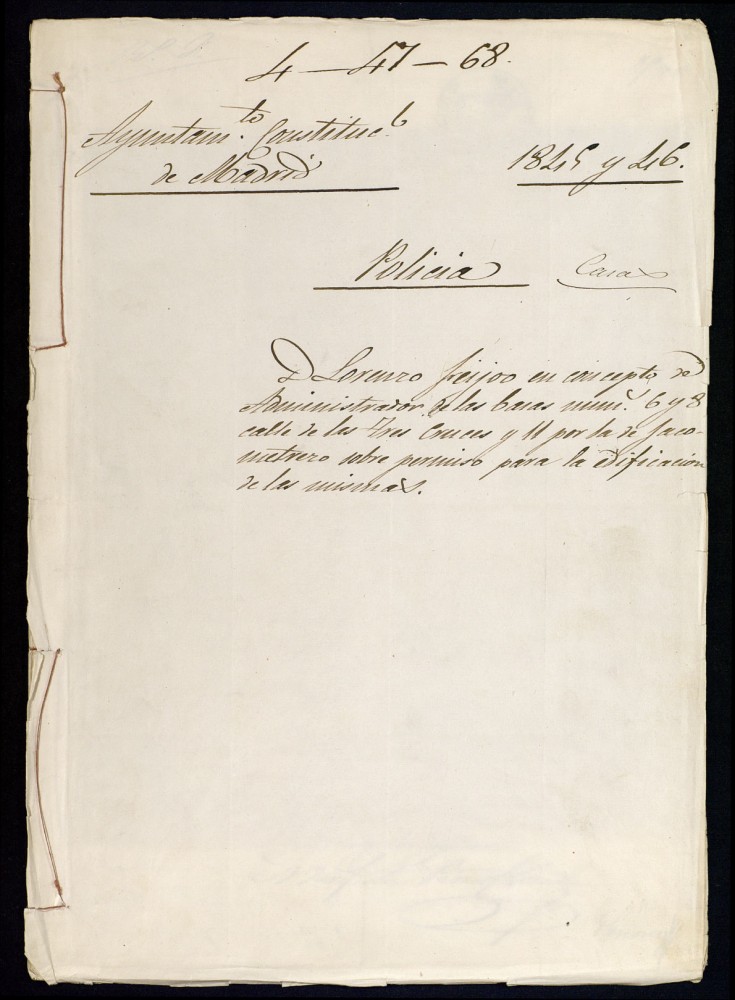 4-47-68.
Ayuntam.to Constituc.l
de Madrid
1845 y 46.
Policia
Casas
D Lorenzo Feijoo en concepto de
Administrador de las Casas num.s 6 y 8
calle de las Tres Cruces y 11 por la de Jaco-
metrezo sobre permiso para la edificacion
de las mismas.